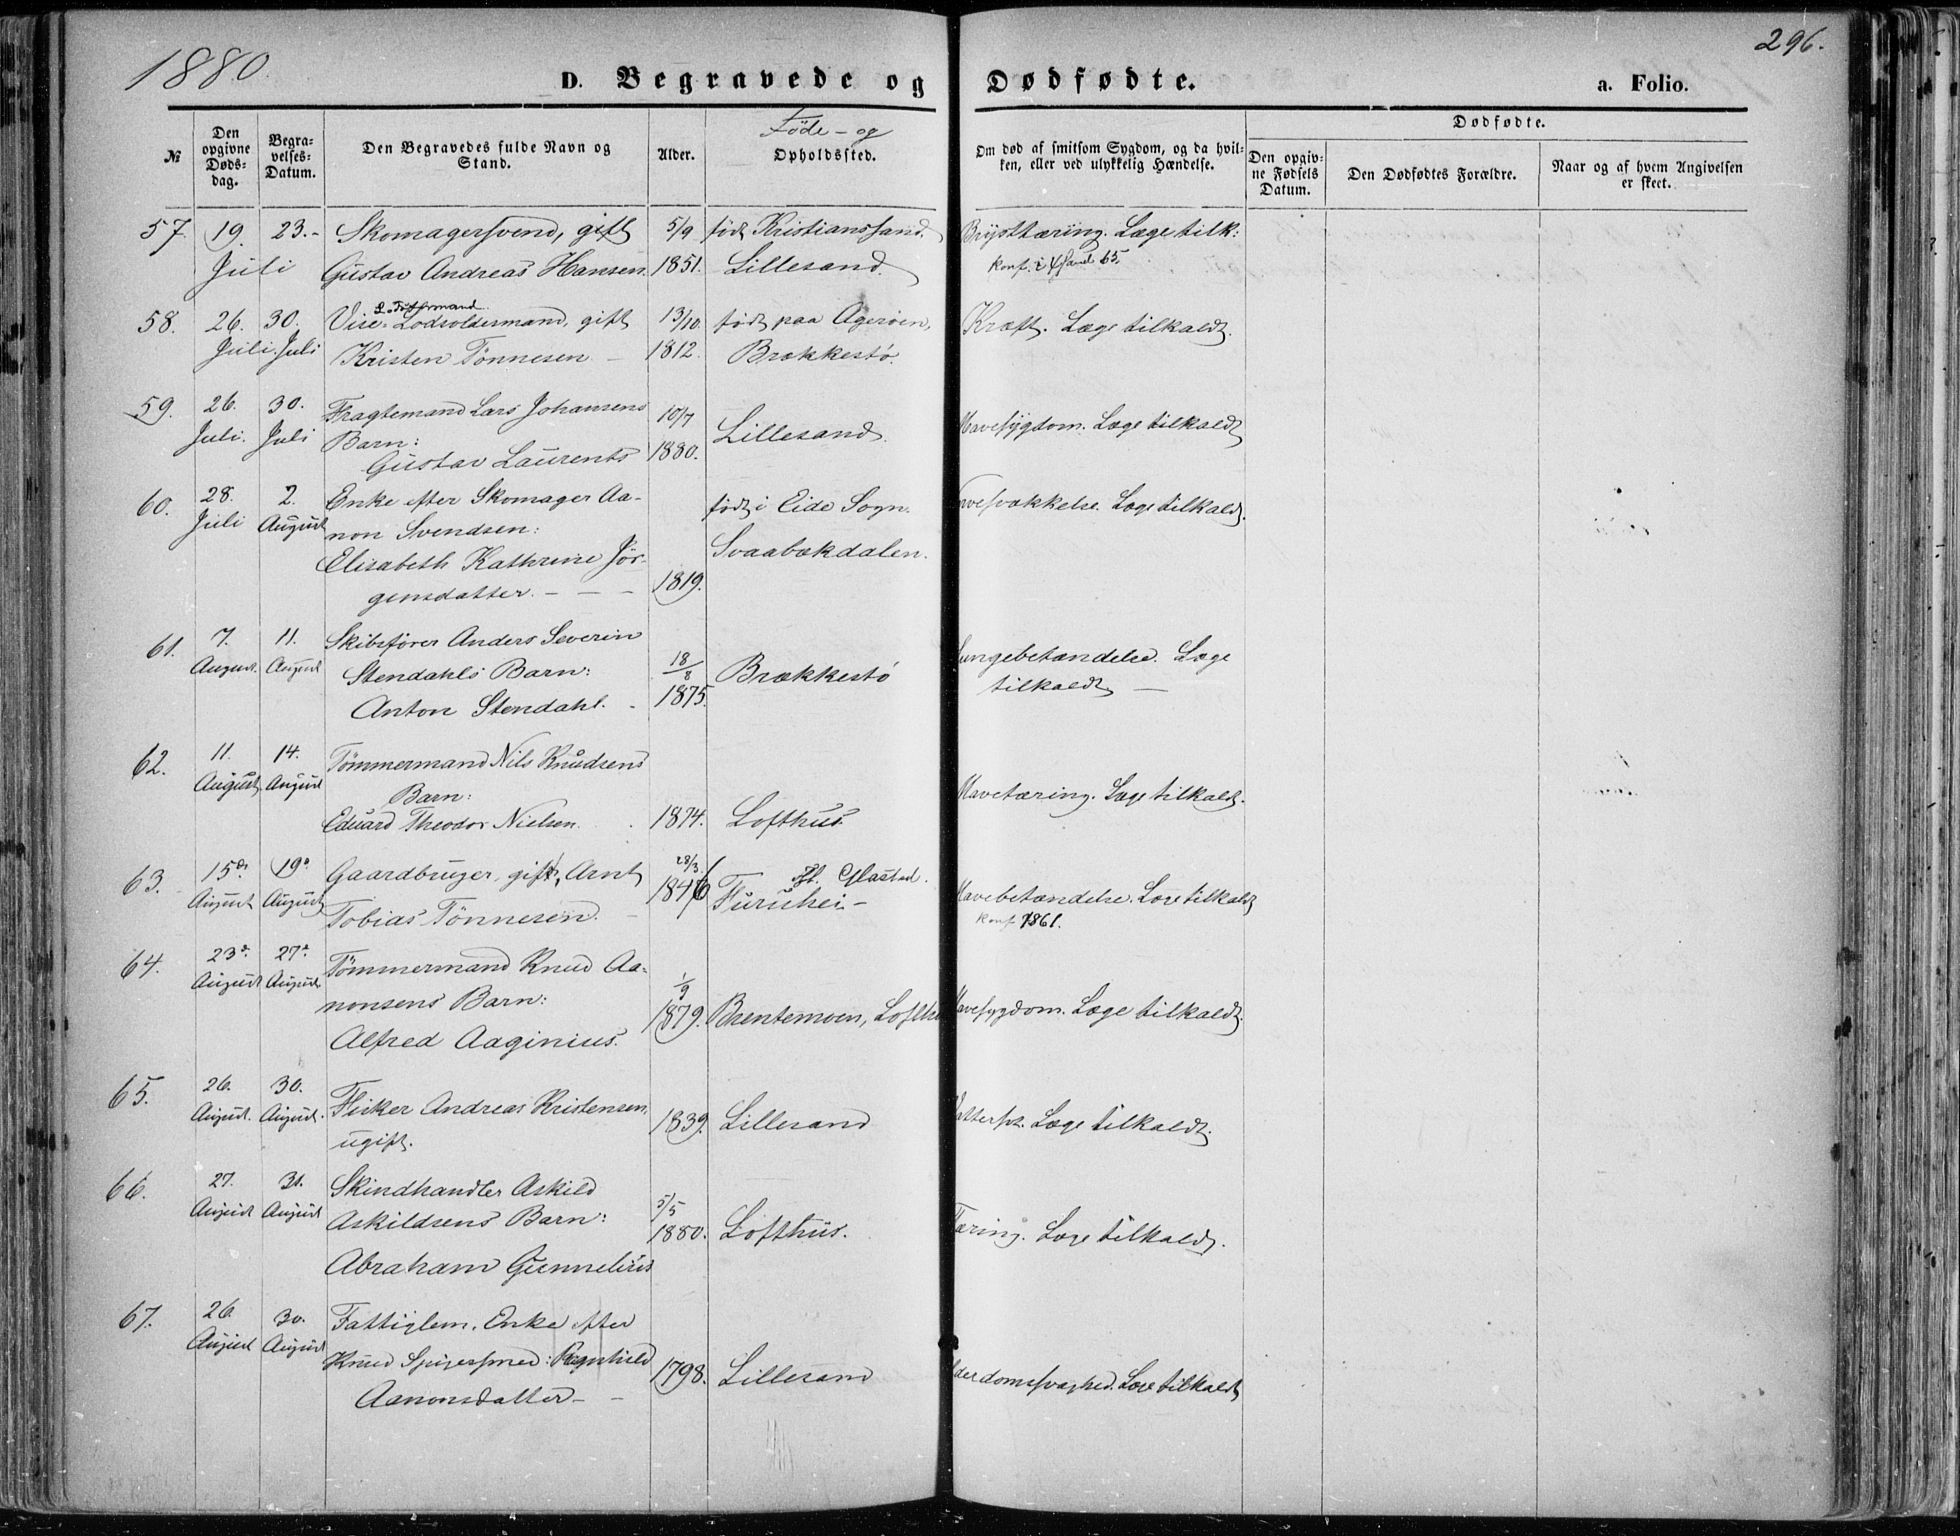 1880.
296.
D. Begravede og Dødfødte.
a. Folio.
№
Den opgivne Døds-dag.
Begra-velses-Datum.
Den Begravedes fulde Navn og Stand.
Alder.
Føde- og
Opholdssted.
Om død af smitsom Sygdom, og da hvil-ken, eller ved ulykkelig Hændelse.
Dødfødte.
Den opgiv-ne Fødsels Datum.
Den Dødfødtes Forældre.
Naar og af hvem Angivelsen er skeet.
57. 19. 23.- Skomagersvend, gift 5/9 født Kristianssand. Brysttæring. Læge tilk:
Juli Gustav Andreas Hansen 1851. Lillesand. konf. i Xsand 65.
58. 26. 30. Vise-Lodsoldermand, gift 13/10. født paa Agerøen, Kræft. Læge tilkaldt.
Juli. Juli Kristen Tönnesen - 1812. Brækkestø.
59. 26. 30. Fragtemand Lars Johansens 10/7
Juli. Juli Barn: Lillesand. Mavesygdom. Læge tilkaldt
Gustav Laurents 1880.
60. 28. 2. Enke efter Skomager Aa-
Juli August non Svendsen: født i Eide Sogn. Læge tilkaldt.
Elisabeth Kathrine Jör- Svaabækdalen.
gensdatter. - - - 1819.
61. 7. 11. Skibsfører Anders Severin
August. August Stendahls Barn: 18/8 Brækkestø Lungebetændelse. Læge
Anton Stendahl. 1875. tilkaldt -
62. 11. 14. Tömmermand Nils Knudsens
August August Barn: Mavetæring. Læge tilkaldt.
Eduard Theodor Nielsen. 1874. Lofthus.
63. 15de 19de Gaardbruger, gift, Arnt 28/3 Glastad.
August August Tobias Tönnesen. - 1846 Furuhei - Mavebetændelse. Læge tilkaldt
konf 1861.
64. 23de 27de Tömmermand Knud Aa-
August August nonsens Barn: 1/9
Alfred Aaginius. 1879. Brentemoen, Lofthu Mavesygdom. Læge tilkaldt.
65. 26. 30. Fisker Andreas Kristensen,
August. August. ugift. 1839. Lillesand Læge tilkaldt.
66. 27. 31. Skindhandler Askild
August August Askildsens Barn: 5/5
Abraham Gunnelius 1880. Lofthus. Tæring. Læge tilkaldt.
67. 26. 30. Fattiglem, Enke efter
August August Knud Spigersmed: Ragnhild
Aanonsdatter - - 1798. Lillesand Alderdomssvaghed. Læge tilkaldt